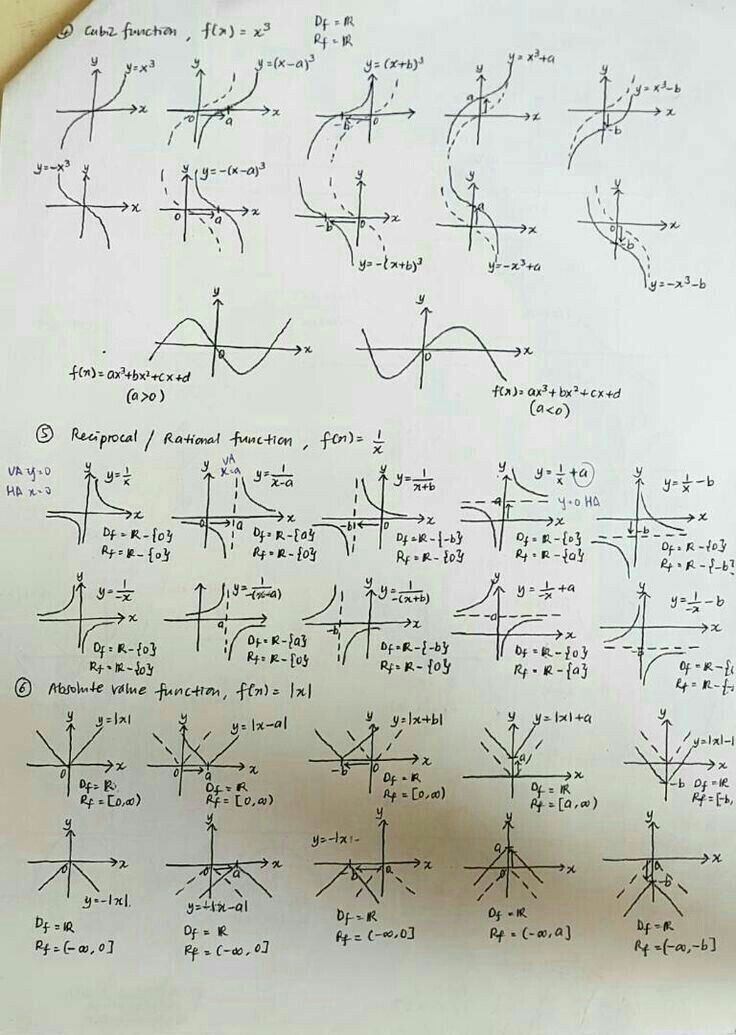 ④ Cubic function, f(x) = x³ Df = ℝ
Rf = ℝ
y=x³ y=(x-a)³ y=(x+b)³ y=x³+a y=x³-b
y=-x³ y=-(x-a)³ y=-(x+b)³ y=-x³+a y=-x³-b
f(x)=ax³+bx²+cx+d
(a>0)
f(x)=ax³+bx²+cx+d
(a<0)
⑤ Reciprocal / Rational function, f(x) = 1/x
VA y=0
HA x=0
y=1/x
Df = ℝ-{0}
Rf = ℝ-{0}
VA
x=a
y=1/(x-a)
Df = ℝ-{a}
Rf = ℝ-{0}
y=1/(x+b)
Df = ℝ-{-b}
Rf = ℝ-{0}
y=1/x+a
y=0 HA
Df = ℝ-{0}
Rf = ℝ-{a}
y=1/x-b
Df = ℝ-{0}
Rf = ℝ-{-b}
y=1/x
Df = ℝ-{0}
Rf = ℝ-{0}
y=1/-(x+a)
Df = ℝ-{a}
Rf = ℝ-{0}
y=1/-(x+b)
Df = ℝ-{-b}
Rf = ℝ-{0}
y=1/-x+a
Df = ℝ-{0}
Rf = ℝ-{a}
y=1/-x-b
Df = ℝ-{
Rf = ℝ-{-
⑥ Absolute value function, f(x) = |x|
y=|x|
Df = ℝ
Rf = [0,∞)
y=|x-a|
Df = ℝ
Rf = [0,∞)
y=|x+b|
Df = ℝ
Rf = [0,∞)
y=|x|+a
Df = ℝ
Rf = [a,∞)
y=|x|-
Df = ℝ
Rf = [-b,
y=-|x|
Df = ℝ
Rf = (-∞,0]
y=-|x-a|
Df = ℝ
Rf = (-∞,0]
y=-|x
Df = ℝ
Rf = (-∞,0]
Df = ℝ
Rf = (-∞,a]
Df = ℝ
Rf = (-∞,-b]